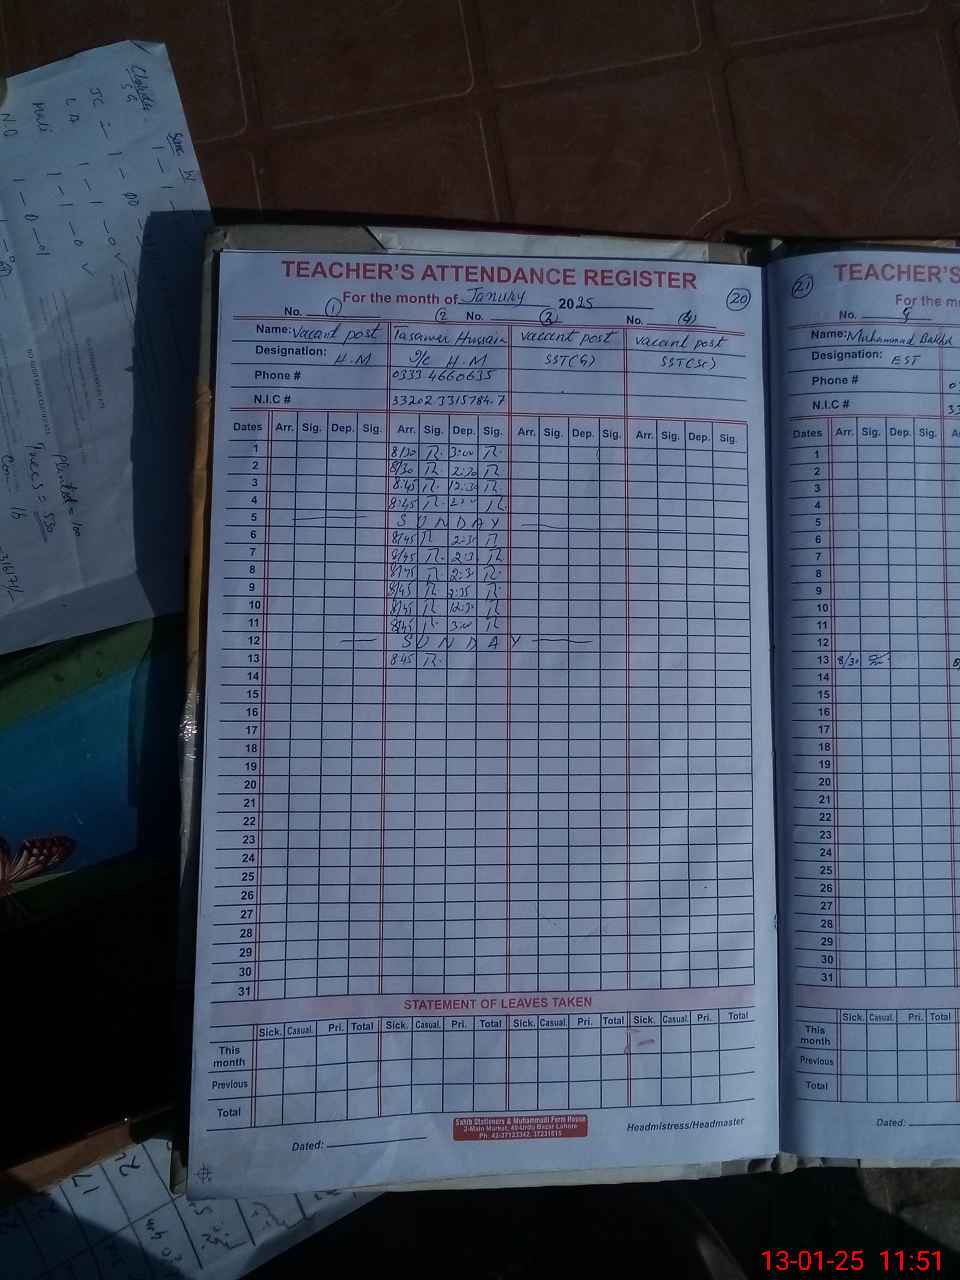 TEACHER'S ATTENDANCE REGISTER
For the month of January 2025
20
No. 1 2 No. 3 No. 4
Name: Vacant post Tasawar Hussain vacant post vacant post
Designation: H.M I/c H.M SST(G) SST(Sc)
Phone # 0333 4660635
N.I.C # 33202.3315784.7
Dates Arr. Sig. Dep. Sig. Arr. Sig. Dep. Sig. Arr. Sig. Dep. Sig. Arr. Sig. Dep. Sig.
1 8/30 3:00
2 8/30 2:30
3 8:45 12:30
4 8:45
5 SUNDAY
6 8/45 2:30
7 8/45 2:3
8 8/45 2:3
9 8/45 2:35
10 8/45 12:30
11 8/45 3:00
12 SUNDAY
13 8:45
14
15
16
17
18
19
20
21
22
23
24
25
26
27
28
29
30
31
STATEMENT OF LEAVES TAKEN
Sick. Casual. Pri. Total Sick. Casual. Pri. Total Sick. Casual. Pri. Total Sick. Casual. Pri. Total
This month
Previous
Total
Sahib Stationers & Muhammadi Form House
2-Main Market, 40-Urdu Bazar Lahore
Ph: 42-37123342, 37231615
Dated:
Headmistress/Headmaster
21
TEACHER'S
For the m
No.
Name: Muhammad Bakhsh
Designation: EST
Phone #
N.I.C # 33
Dates Arr. Sig. Dep. Sig.
1
2
3
4
5
6
7
8
9
10
11
12
13 8/30
14
15
16
17
18
19
20
21
22
23
24
25
26
27
28
29
30
31
Sick. Casual. Pri. Total
This month
Previous
Total
Dated:
Planted = 100
Trees = 530
13-01-25 11:51